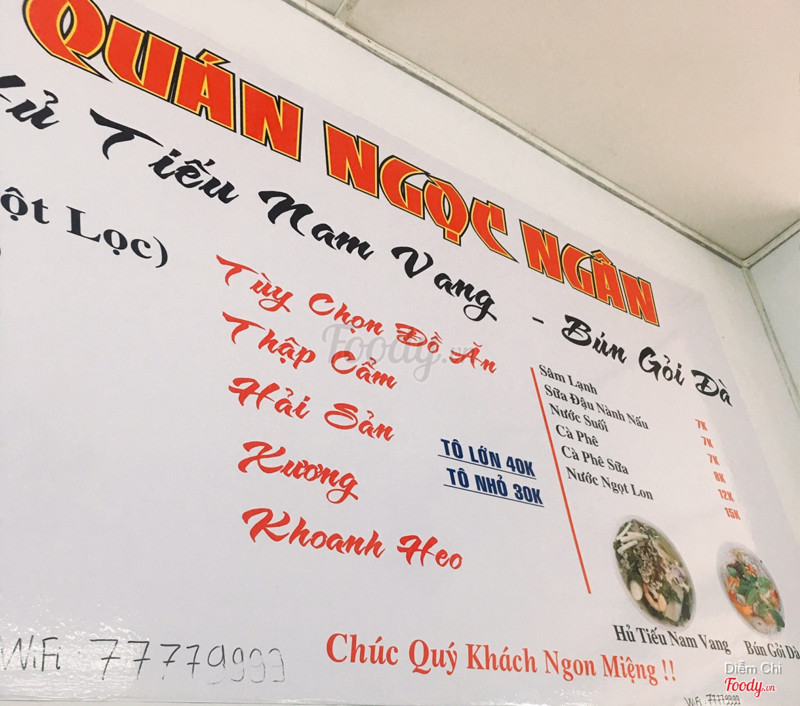 QUÁN NGỌC NGÂN
Hủ Tiếu Nam Vang - Bún Gỏi Dà
ột Lọc)
Tùy Chọn Đồ Ăn
Thập Cẩm
Hải Sản
Xương
Khoanh Heo
TÔ LỚN 40K
TÔ NHỎ 30K
Sâm Lạnh 7K
Sữa Đậu Nành Nấu 7K
Nước Suối 7K
Cà Phê 8K
Cà Phê Sữa 12K
Nước Ngọt Lon 15K
Hủ Tiếu Nam Vang
Bún Gỏi Dà
Chúc Quý Khách Ngon Miệng !!
WiFi : 77779999
WiFi: 77779999
Foody.vn
Diễm Chi
Foody.vn